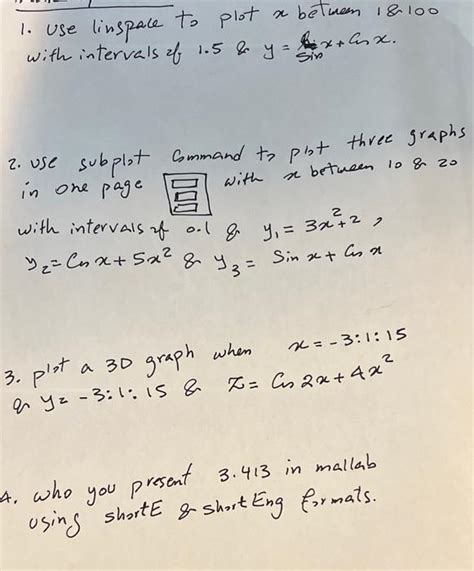 1. Use linspace to plot x between 1 & 100
with intervals of 1.5 & y = Sin x + Cos x.
2. Use subplot Command to plot three graphs
in one page with x between 10 & 20
with intervals of 0.1 & y₁ = 3x² + 2 ,
y₂ = Cos x + 5x² & y₃ = Sin x + Cos x
3. plot a 3D graph when x = -3:1:15
& y = -3:1:15 & Z = Cos 2x + 4x²
4. who you present 3.413 in matlab
using shortE & shortEng formats.